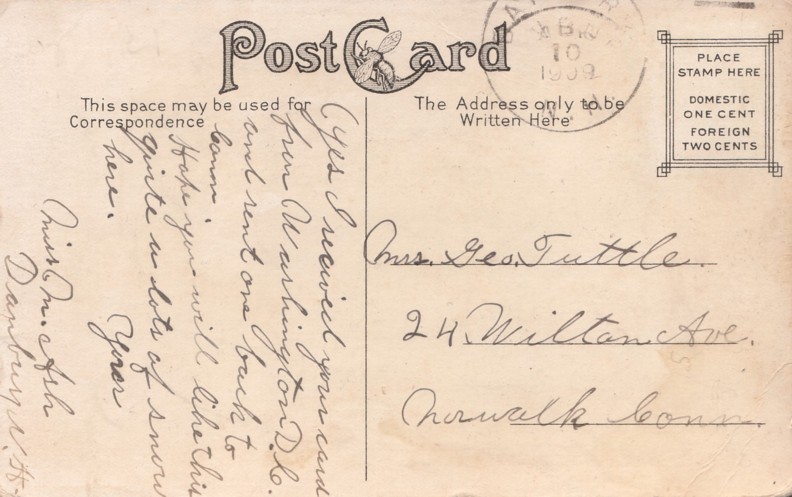 Post Card
This space may be used for
Correspondence
The Address only to be
Written Here
PLACE
STAMP HERE
DOMESTIC
ONE CENT
FOREIGN
TWO CENTS
10
1909
N.H.
Yes I recived your card
from Washington D.C.
and sent one back to
Conn.
Hope you will like this
quite a lots of snow
here.
Yours
Miss M. Ash
Danbury N.H.
Mrs. Geo. Tuttle.
24 Wilton Ave.
Norwalk Conn.